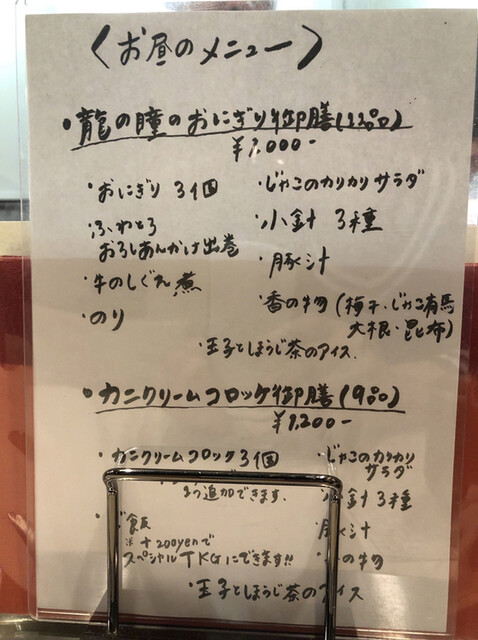 〈お昼のメニュー〉
・龍の瞳のおにぎり御膳(12品)
¥1,000-
・おにぎり 3個
・ふわとろ
おろしあんかけ出巻
・牛のしぐれ煮
・のり
・じゃこのカリカリサラダ
・小針 3種
・豚汁
・香の物(梅干、じゃこ有馬
大根・昆布)
・玉子とほうじ茶のアイス
・カニクリームコロッケ御膳(9品)
¥1,200-
・カニクリームコロッケ3個
追加できます。
ご飯
※+200yenで
スペシャルTKGにできます!!
・じゃこのカリカリ
サラダ
小針 3種
豚汁
の物
・玉子とほうじ茶のアイス